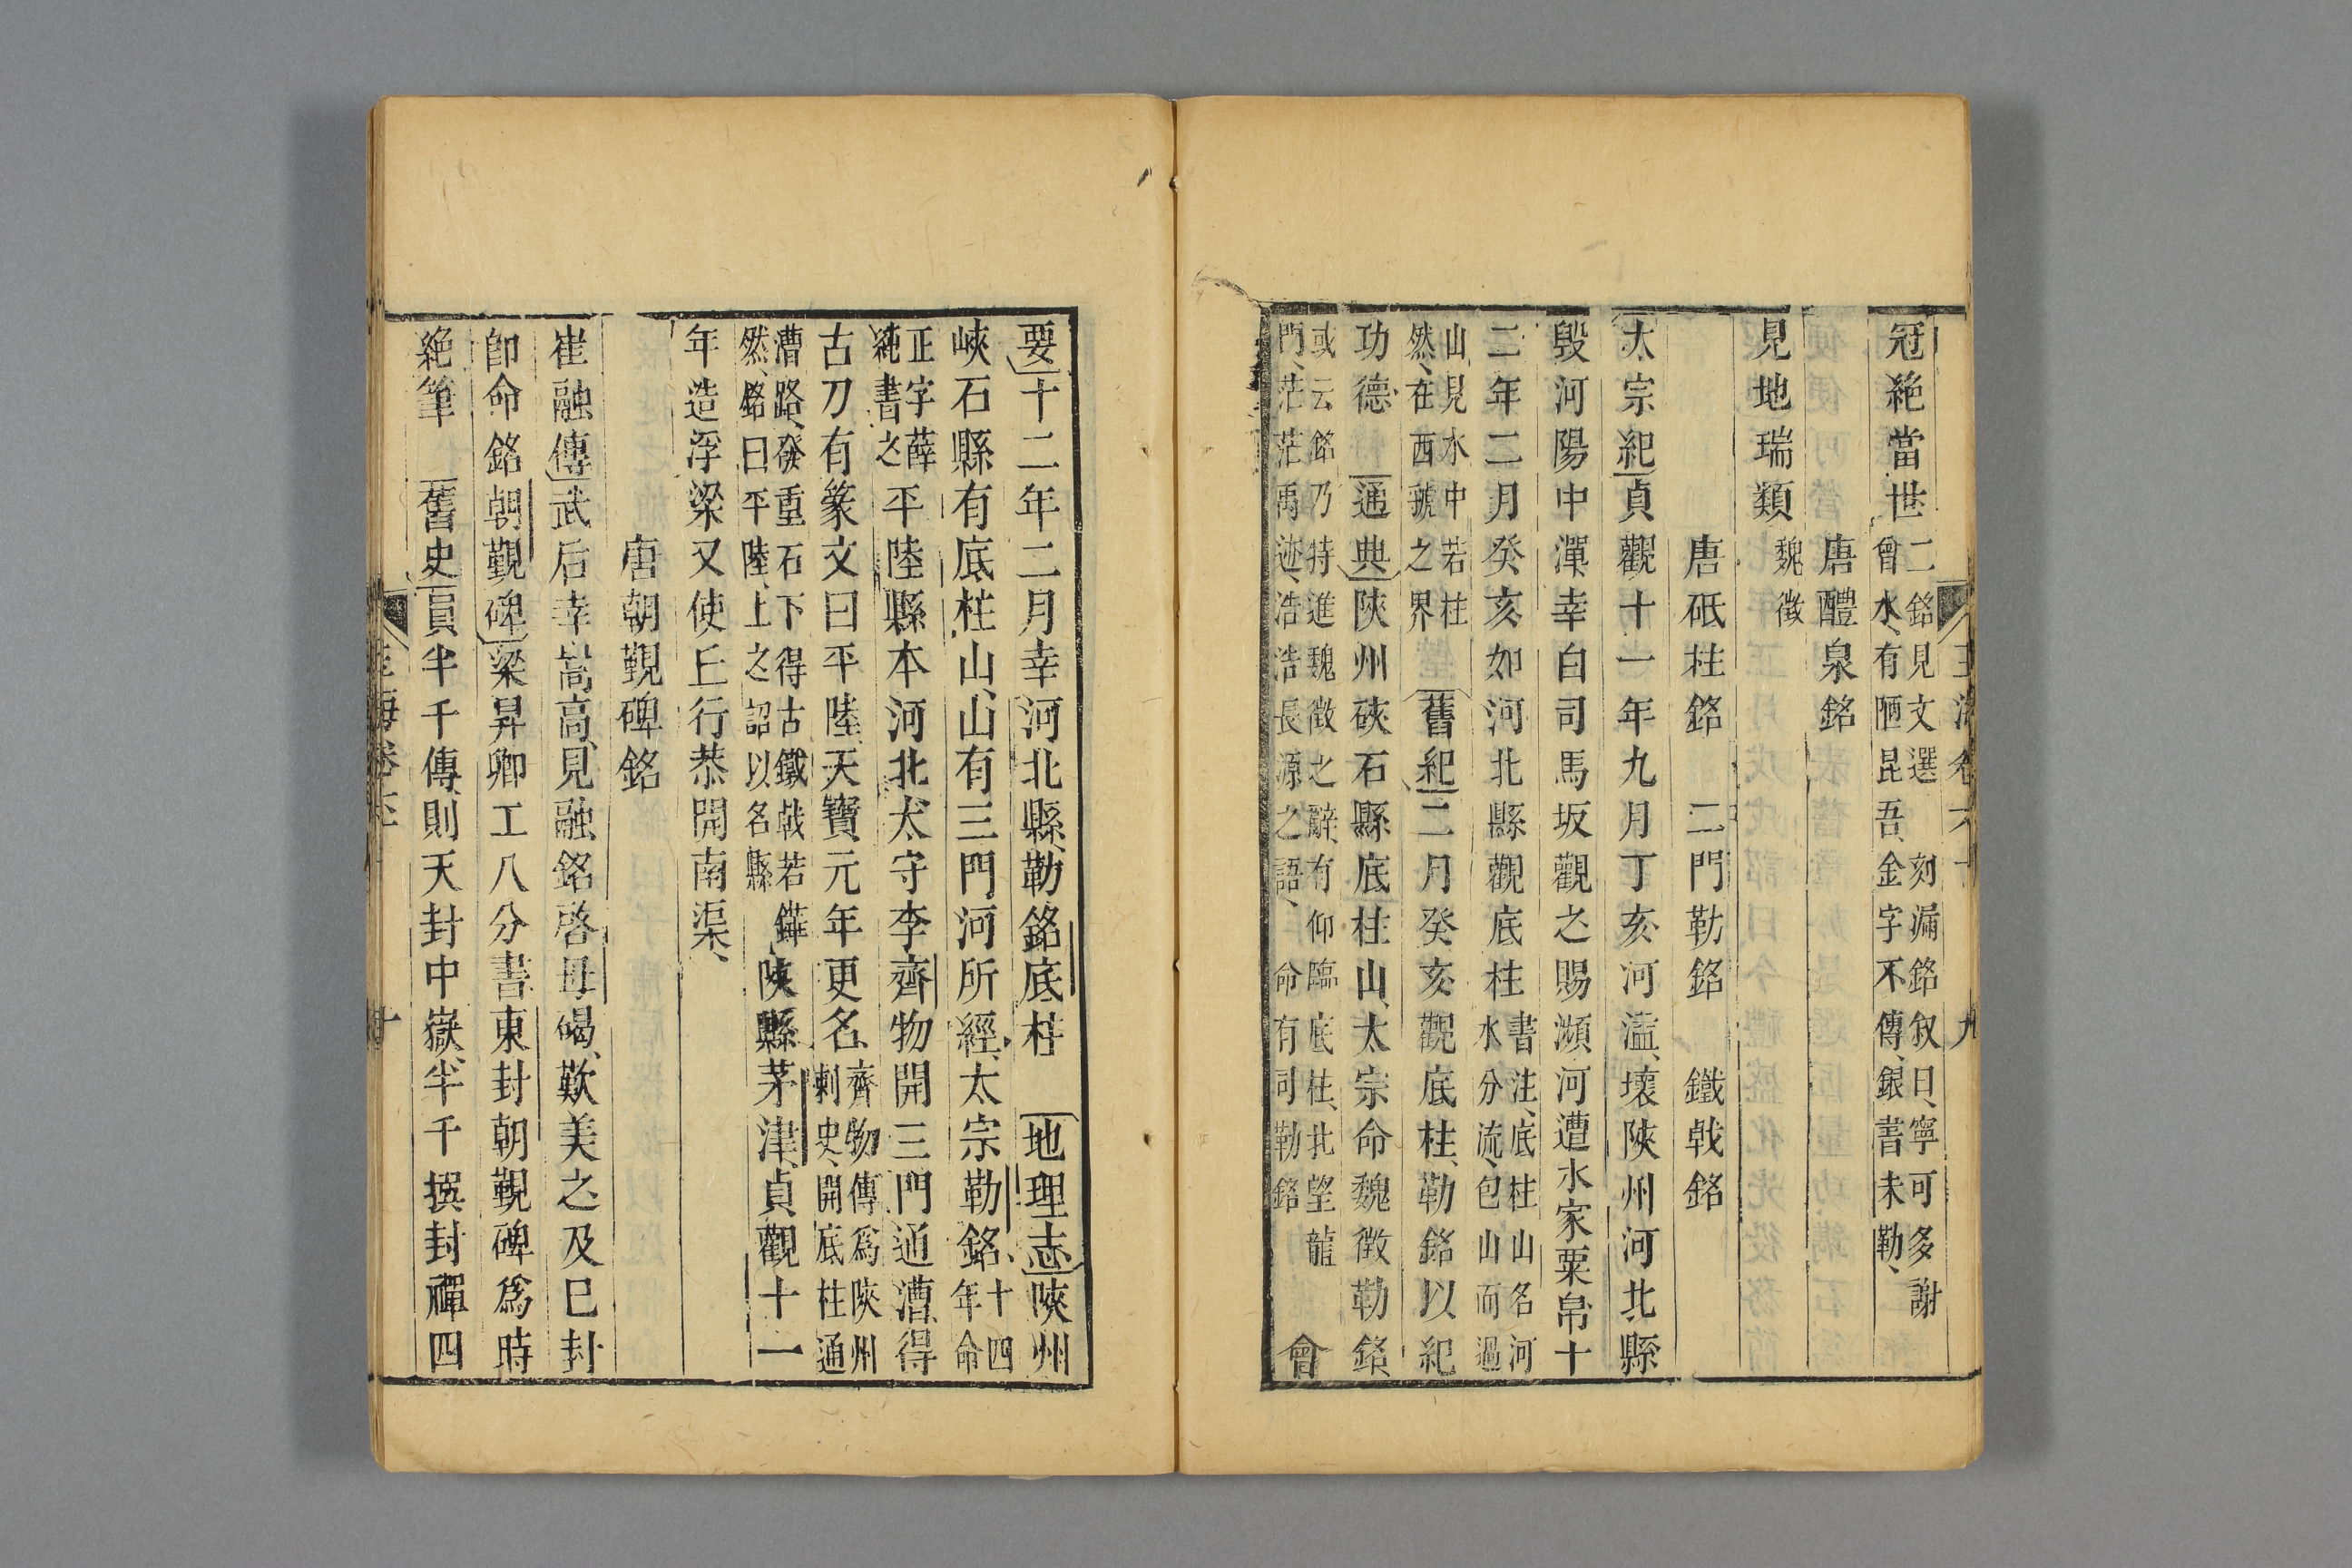 冠絶當世二銘見文選 刻漏銘叙曰寧可多謝曾水有陋昆吾金字不傳銀書未勒
唐醴泉銘
見地瑞類魏徵
唐砥柱銘 二門勒銘 鐵戟銘
太宗紀貞觀十一年九月丁亥河溢壞陝州河北縣
毁河陽中潬幸白司馬坂觀之賜瀕河遭水家粟帛十
二年二月癸亥如河北縣觀底柱書注底柱山名河水分流包山而過
山見水中若柱然在西虢之界 舊紀二月癸亥觀底柱勒銘以紀
功德 通典陝州硤石縣底柱山太宗命魏徵勒銘
或云銘乃特進魏徵之辭有仰臨底柱北望龍門茫茫禹迹浩浩長源之語 命有司勒銘 會
要十二年二月幸河北縣勒銘底柱 地理志陝州
峽石縣有底柱山山有三門河所經太宗勒銘十四年命
正字薛純書之平陸縣本河北太守李齊物開三門通漕得
古刀有篆文曰平陸天寶元年更名齊物傳爲陝州刺史開底柱通
漕路發重石下得古鐵戟若鏵然銘曰平陸上之詔以名縣 陝縣茅津貞觀十一
年造浮梁又使丘行恭開南渠
唐朝覲碑銘
崔融傳武后幸嵩高見融銘啓母碣歎美之及已封
卽命銘朝覲碑梁昇卿工八分書東封朝覲碑爲時
絶筆 舊史員半千傳則天封中嶽半千撰封禪四